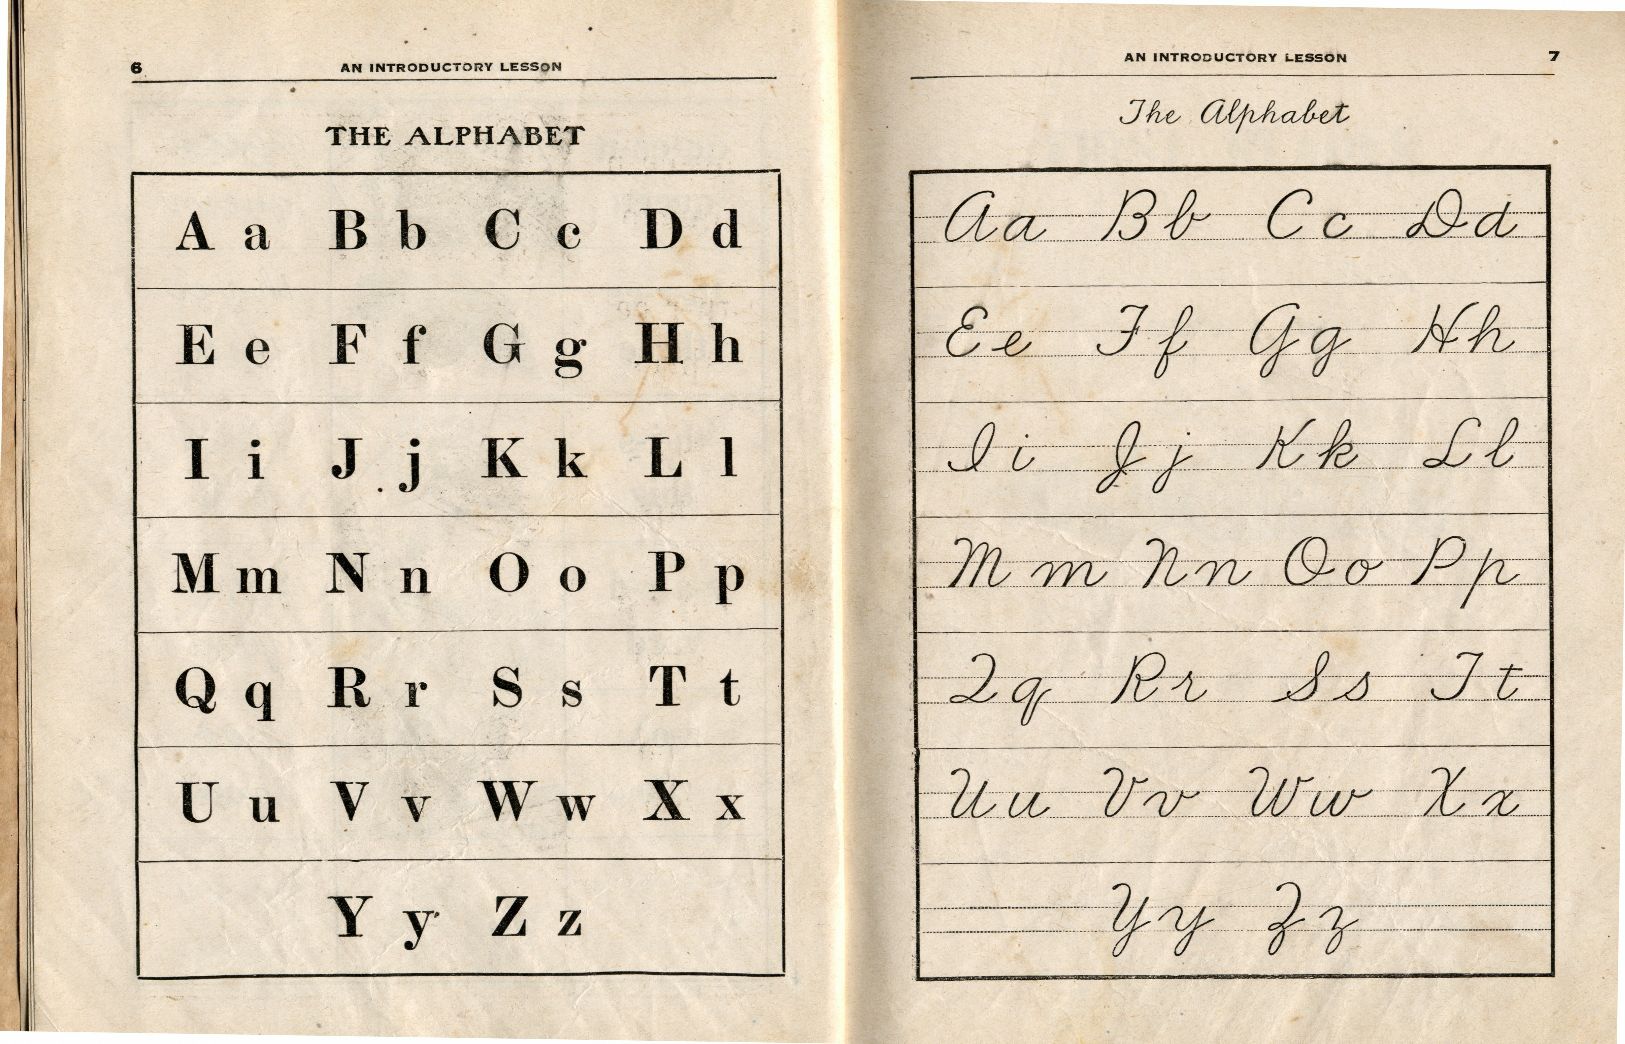 6 AN INTRODUCTORY LESSON
THE ALPHABET
A a B b C c D d
E e F f G g H h
I i J j K k L l
M m N n O o P p
Q q R r S s T t
U u V v W w X x
Y y Z z
AN INTRODUCTORY LESSON 7
The Alphabet
Aa Bb Cc Dd
Ee Ff Gg Hh
Ii Jj Kk Ll
Mm Nn Oo Pp
Qq Rr Ss Tt
Uu Vv Ww Xx
Yy Zz